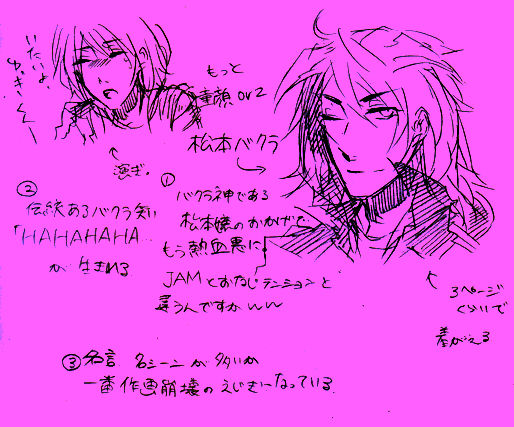 いたいよ、
ゆぎくんー
↑
演ぎ。
もっと
童顔or2
松本バクラ
①
バクラ神である
松本嬢のおかげで、
もう熱血悪に
JAMとおなじテンションと
違うんですかww
②
伝統あるバクラ笑い
「HAHAHAHA...
が生まれる
3ページ
くらいで
差がでる
③名言 名シーンが多いか
一番作画崩壊のえじきになっている